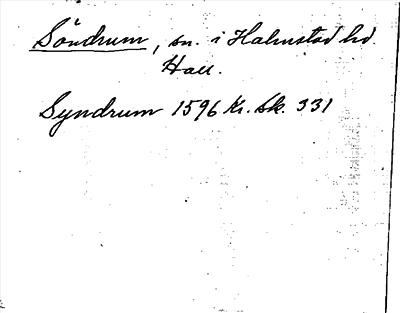 Söndrum, sn. i Halmstad hd.
Hall.
Syndrum 1596 Kr. Sk. 331